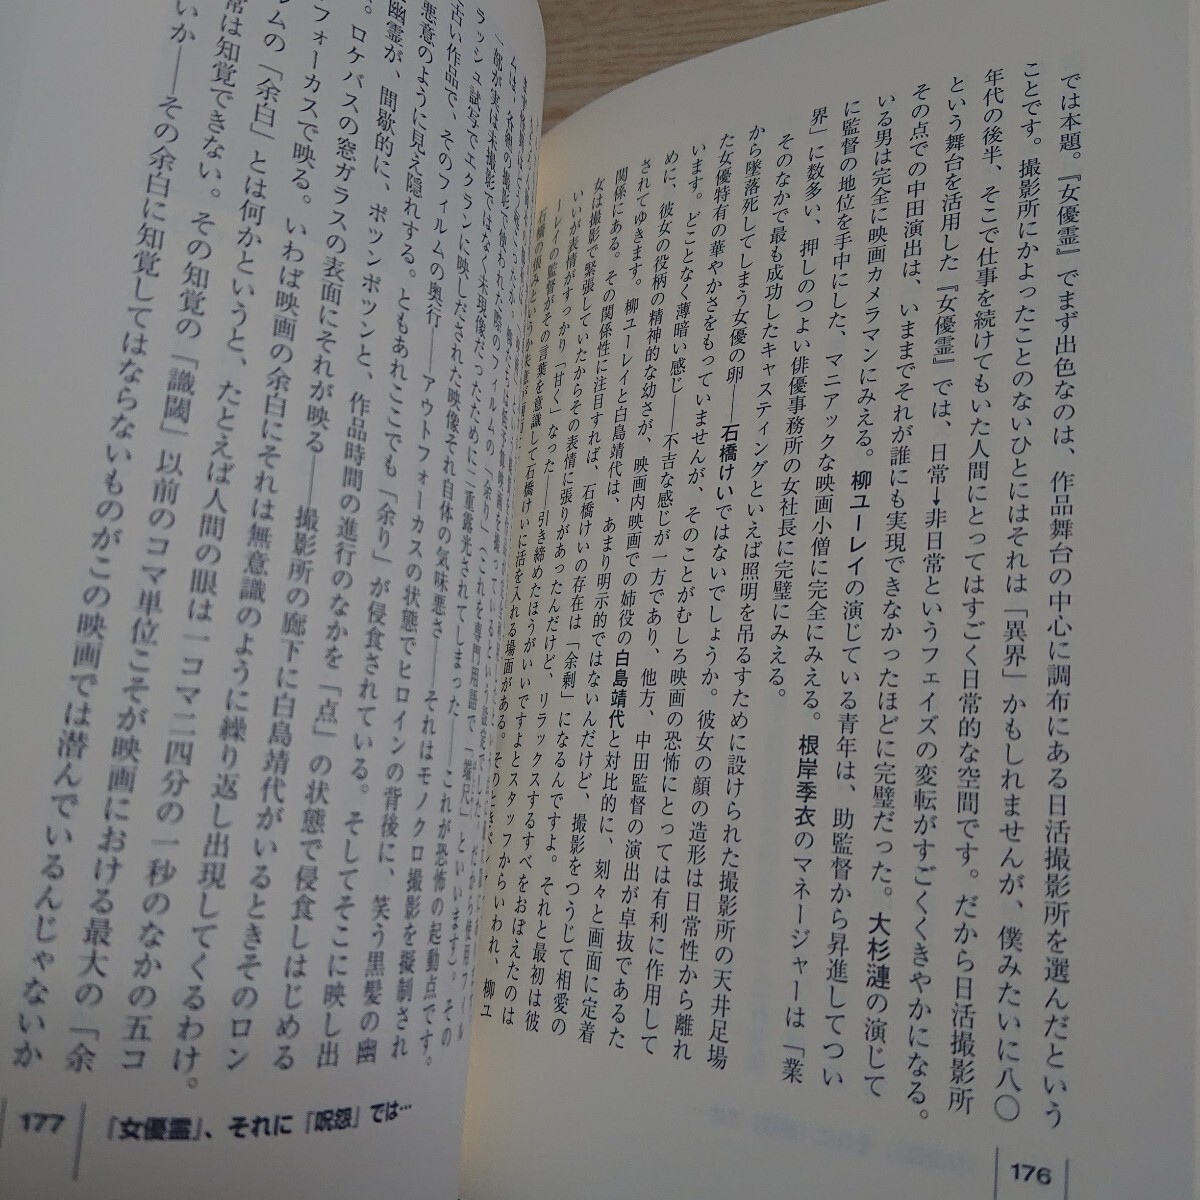 では本題。『女優霊』でまず出色なのは、作品舞台の中心に調布にある日活撮影所を選んだという
ことです。撮影所にかよったことのないひとにはそれは「異界」かもしれませんが、僕みたいに八〇
年代の後半、そこで仕事を続けてもいた人間にとってはすごく日常的な空間です。だから日活撮影所
という舞台を活用した『女優霊』では、日常→非日常というフェイズの変転がすごくくきやかになる。
その点での中田演出は、いままでそれが誰にも実現できなかったほどに完璧だった。大杉漣の演じて
いる男は完全に映画カメラマンにみえる。柳ユーレイの演じている青年は、助監督から昇進してつい
に監督の地位を手中にした、マニアックな映画小僧に完全にみえる。根岸季衣のマネージャーは「業
界」に数多い、押しのつよい俳優事務所の女社長に完璧にみえる。
そのなかで最も成功したキャスティングといえば照明を吊るすために設けられた撮影所の天井足場
から墜落死してしまう女優の卵――石橋けいではないでしょうか。彼女の顔の造形は日常性から離れ
た女優特有の華やかさをもっていませんが、そのことがむしろ映画の恐怖にとっては有利に作用して
います。どことなく薄暗い感じ――不吉な感じが一方であり、他方、中田監督の演出が卓抜であるた
めに、彼女の役柄の精神的な幼さが、映画内映画での姉役の白島靖代と対比的に、刻々と画面に定着
されてゆきます。柳ユーレイと白島靖代は、あまり明示的ではないんだけど、撮影をつうじて相愛の
関係にある。その関係性に注目すれば、石橋けいの存在は「余剰」になるんですよ。それと最初は彼
女は撮影で緊張していたからその表情に張りがあったんだけど、リラックスするすべをおぼえたのは
いいが表情がすっかり「甘く」なった――引き締めたほうがいいですよとスタッフからいわれ、柳ユ
ーレイの監督がその言葉を意識して石橋けいに活を入れる場面がある。そのとき
176
一部が実は未撮影ではなく未現像だったために二重露光されてしまった――これが恐怖の起動点です。
ラッシュ試写でエクランに映しだされた映像それ自体の気味悪さ――それはモノクロ撮影を擬制され
古い作品で、そのフィルムの奥行――アウトフォーカスの状態でヒロインの背後に、笑う黒髪の幽
悪意のように見え隠れする。ともあれここでも「余り」が侵食されている。そしてそこに映し出
幽霊が、間歇的に、ポツンポツンと、作品時間の進行のなかを「点」の状態で侵食しはじめる
。ロケバスの窓ガラスの表面にそれが映る――撮影所の廊下に白島靖代がいるときそのロン
フォーカスで映る。いわば映画の余白にそれは無意識のように繰り返し出現してくるわけ。
ムの「余白」とは何かというと、たとえば人間の眼は一コマ二四分の一秒のなかの五コ
常は知覚できない。その知覚の「識閾」以前のコマ単位こそが映画における最大の「余
いか――その余白に知覚してはならないものがこの映画では潜んでいるんじゃないか
177
『女優霊』、それに『呪怨』では…